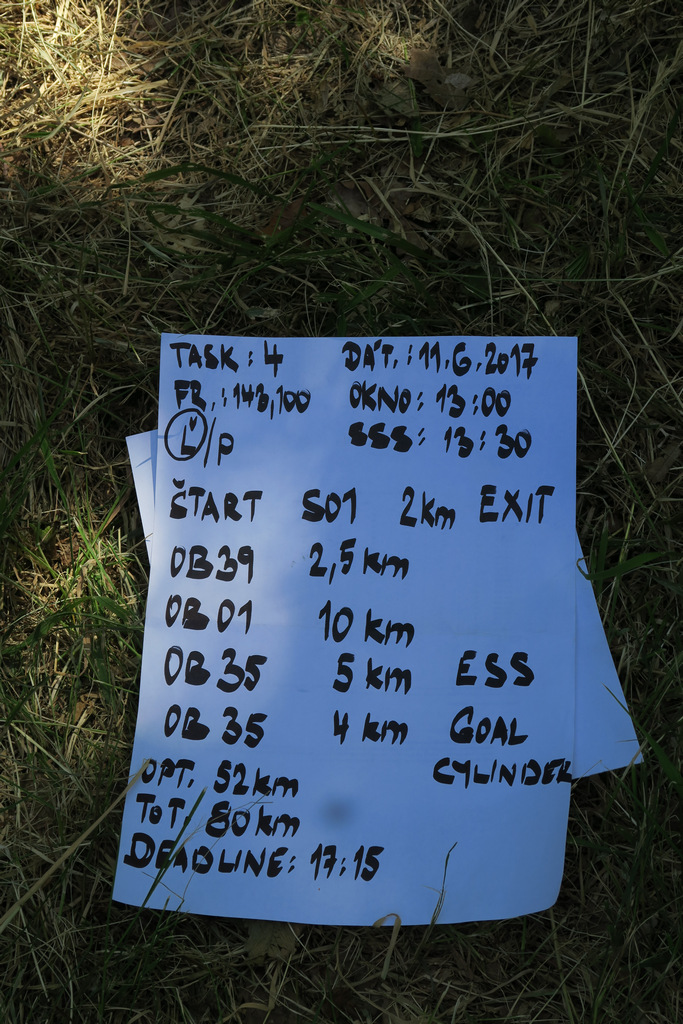 TASK : 4 DÁT. : 11.6.2017
FR. : 143,100 OKNO : 13:00
Ľ/P SSS : 13:30
ŠTART S01 2km EXIT
OB39 2,5 km
OB01 10 km
OB35 5 km ESS
OB35 4 km GOAL
CYLINDER
OPT. 52km
TOT. 80km
DEADLINE: 17:15